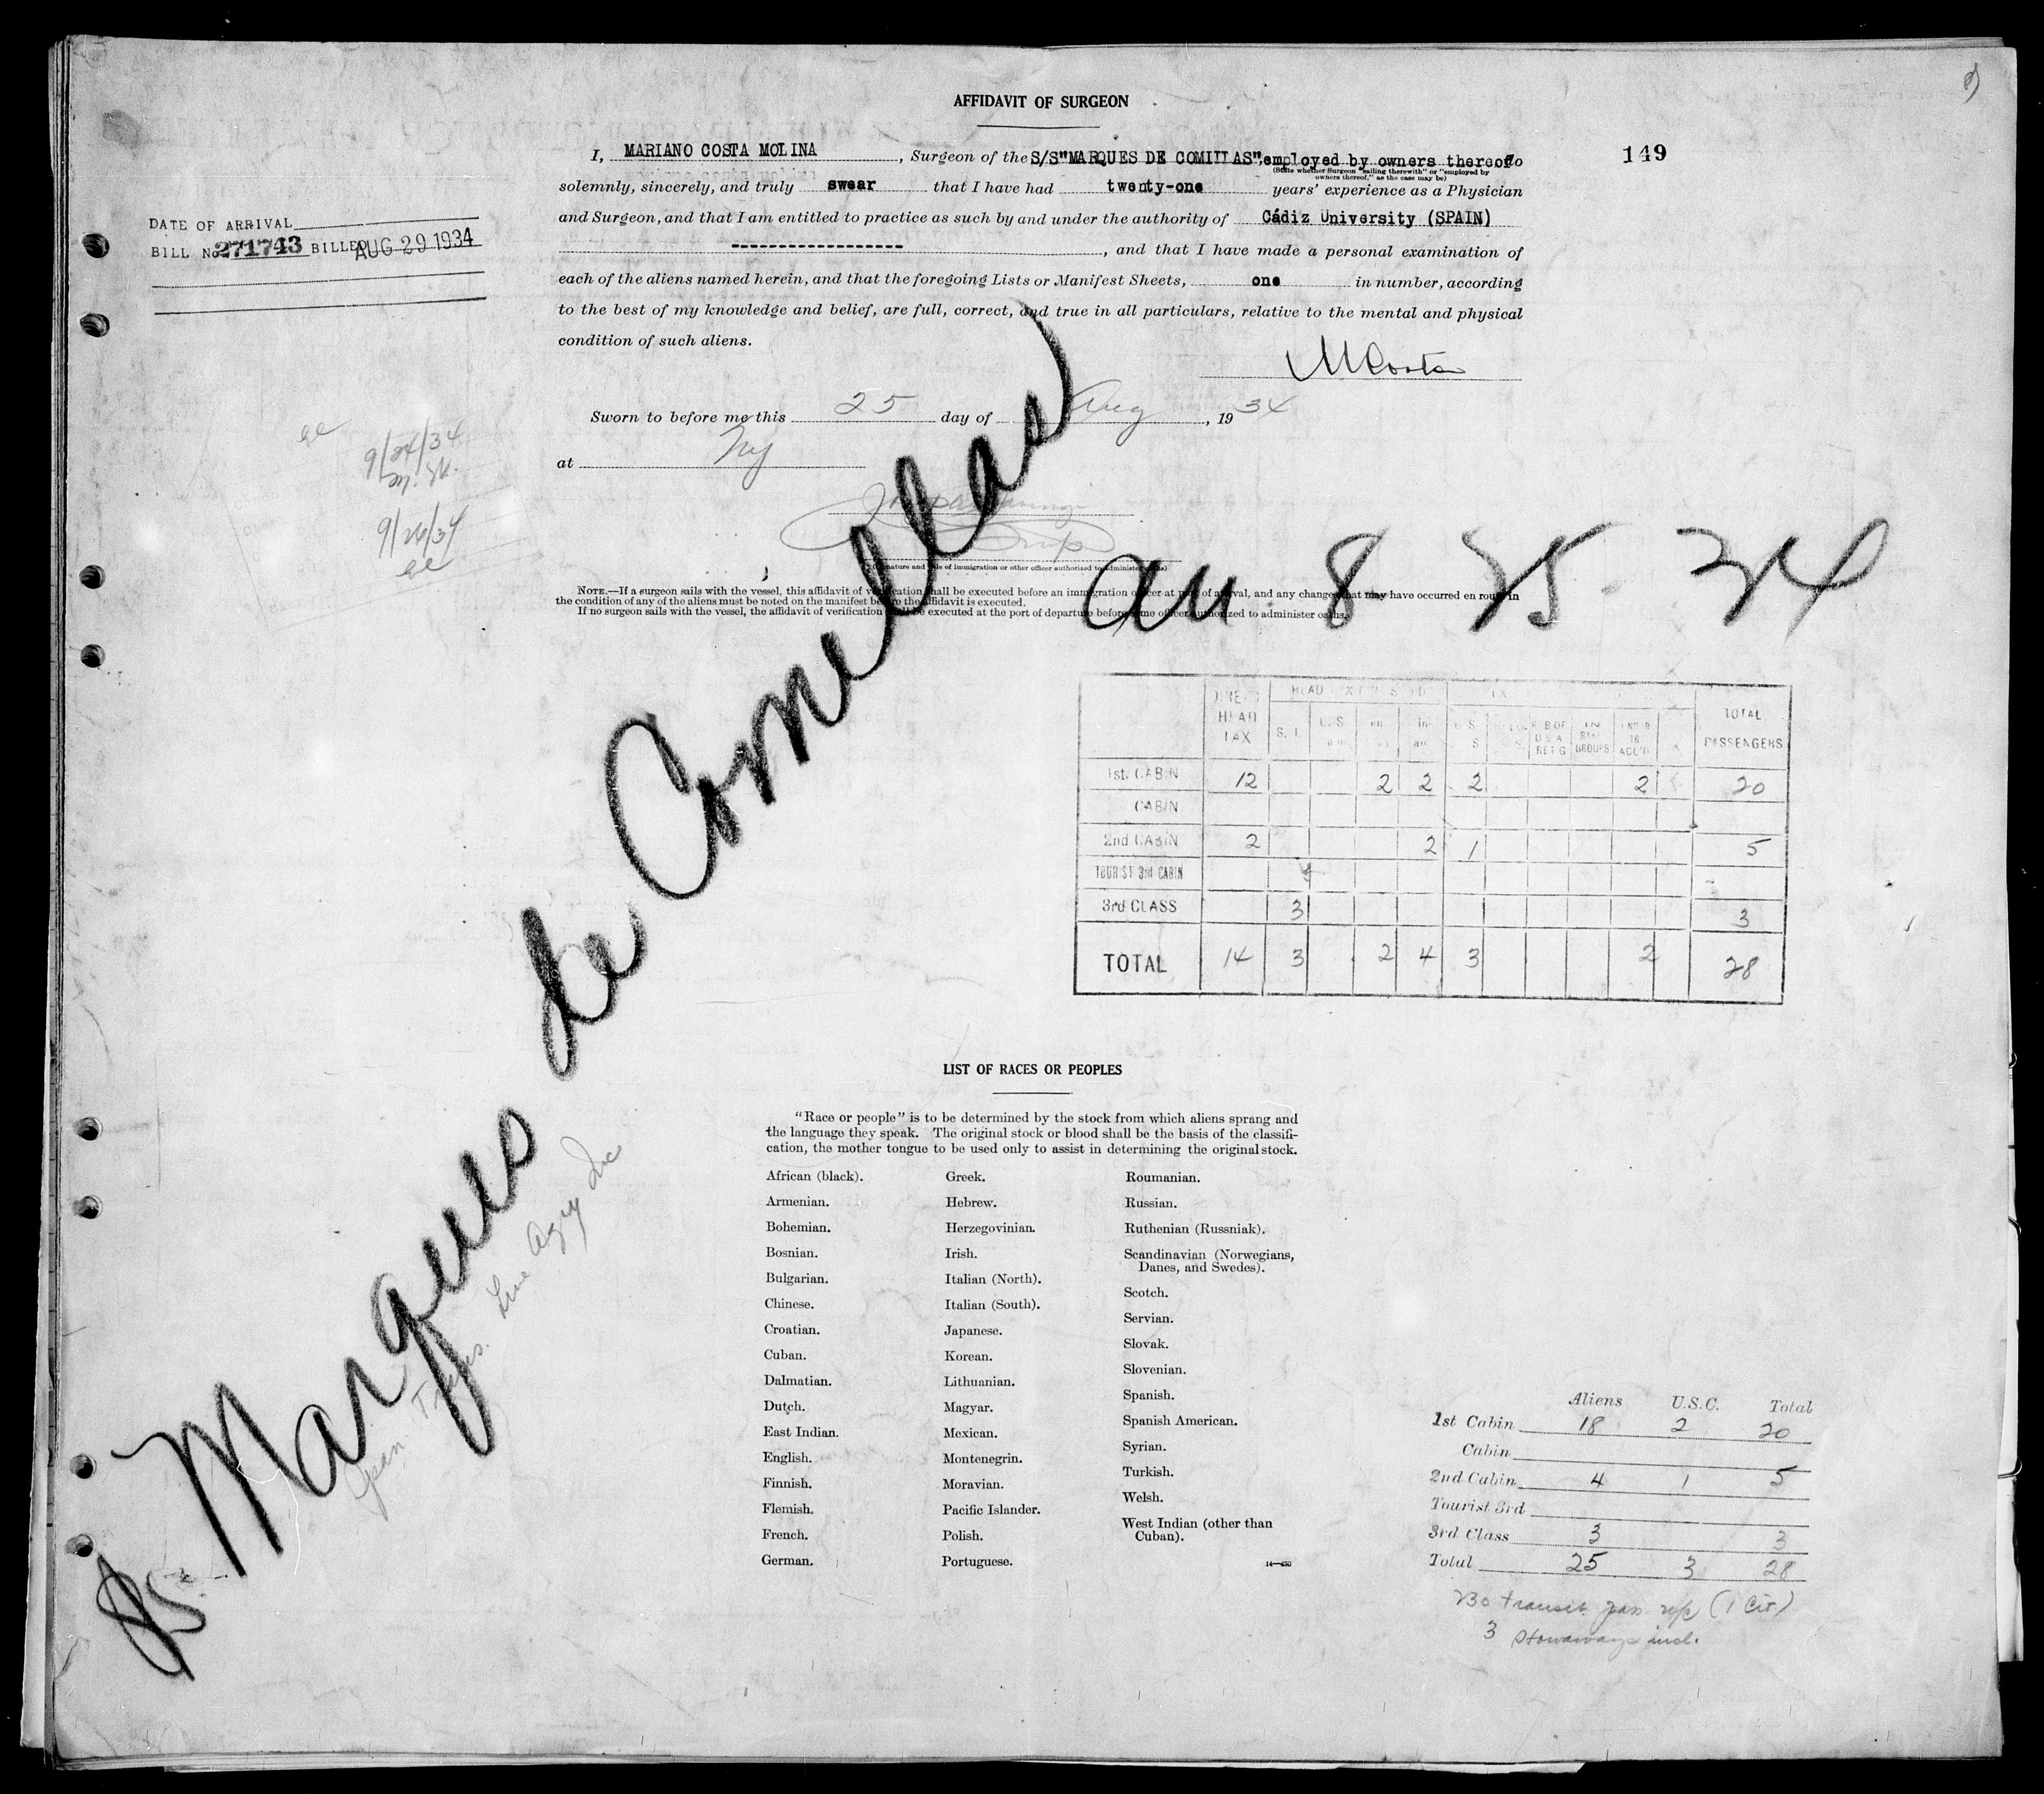 AFFIDAVIT OF SURGEON
149
I, MARIANO COSTA MOLINA, Surgeon of the S/S "MARQUES DE COMILLAS", employed by owners thereof do
(State whether Surgeon "sailing therewith" or "employed by owners thereof," as the case may be)
solemnly, sincerely, and truly swear that I have had twenty-one years' experience as a Physician
and Surgeon, and that I am entitled to practice as such by and under the authority of Cádiz University (SPAIN)
------------------, and that I have made a personal examination of
each of the aliens named herein, and that the foregoing Lists or Manifest Sheets, one in number, according
to the best of my knowledge and belief, are full, correct, and true in all particulars, relative to the mental and physical
condition of such aliens.
MCosta
DATE OF ARRIVAL
BILL No. 271743 BILLED AUG 29 1934
Sworn to before me this 25 day of Aug, 1934
at NY
9/24/34
9/26/34
(Signature and title of immigration or other officer authorized to administer oaths)
NOTE.—If a surgeon sails with the vessel, this affidavit of verification shall be executed before an immigration officer at port of arrival, and any changes that may have occurred en route in
the condition of any of the aliens must be noted on the manifest before the affidavit is executed.
If no surgeon sails with the vessel, the affidavit of verification shall be executed at the port of departure before some officer authorized to administer oaths.
SS Marques de Comellas
Arr 8 25 34
Span. Trans. Line Agcy Inc
DIRECT HEAD TAX
HEAD TAX
S. I.
U.S.
IN BAND GROUPS
UND'R 16 ACC'D
TOTAL PASSENGERS
1st. CABIN 12 2 2 2 2 20
CABIN
2nd CABIN 2 2 1 5
TOURIST 3rd CABIN
3rd CLASS 3 3
TOTAL 14 3 2 4 3 2 28
LIST OF RACES OR PEOPLES
"Race or people" is to be determined by the stock from which aliens sprang and
the language they speak. The original stock or blood shall be the basis of the classifi-
cation, the mother tongue to be used only to assist in determining the original stock.
African (black).
Armenian.
Bohemian.
Bosnian.
Bulgarian.
Chinese.
Croatian.
Cuban.
Dalmatian.
Dutch.
East Indian.
English.
Finnish.
Flemish.
French.
German.
Greek.
Hebrew.
Herzegovinian.
Irish.
Italian (North).
Italian (South).
Japanese.
Korean.
Lithuanian.
Magyar.
Mexican.
Montenegrin.
Moravian.
Pacific Islander.
Polish.
Portuguese.
Roumanian.
Russian.
Ruthenian (Russniak).
Scandinavian (Norwegians,
Danes, and Swedes).
Scotch.
Servian.
Slovak.
Slovenian.
Spanish.
Spanish American.
Syrian.
Turkish.
Welsh.
West Indian (other than
Cuban).
14—430
Aliens U.S.C. Total
1st Cabin 18 2 20
Cabin
2nd Cabin 4 1 5
Tourist 3rd
3rd Class 3 3
Total 25 3 28
230 transit pass (1 Cit)
3 Stowaways incl.